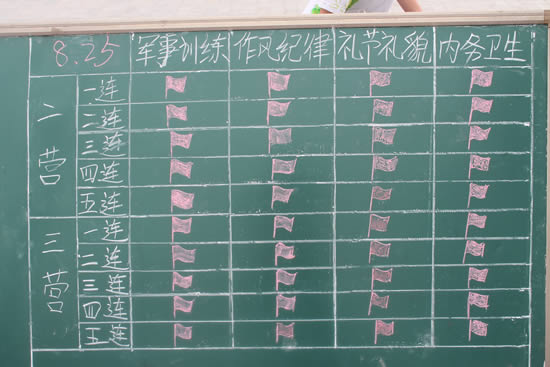 8.25 军事训练 作风纪律 礼节礼貌 内务卫生
二营
一连
二连
三连
四连
五连
三营
一连
二连
三连
四连
五连